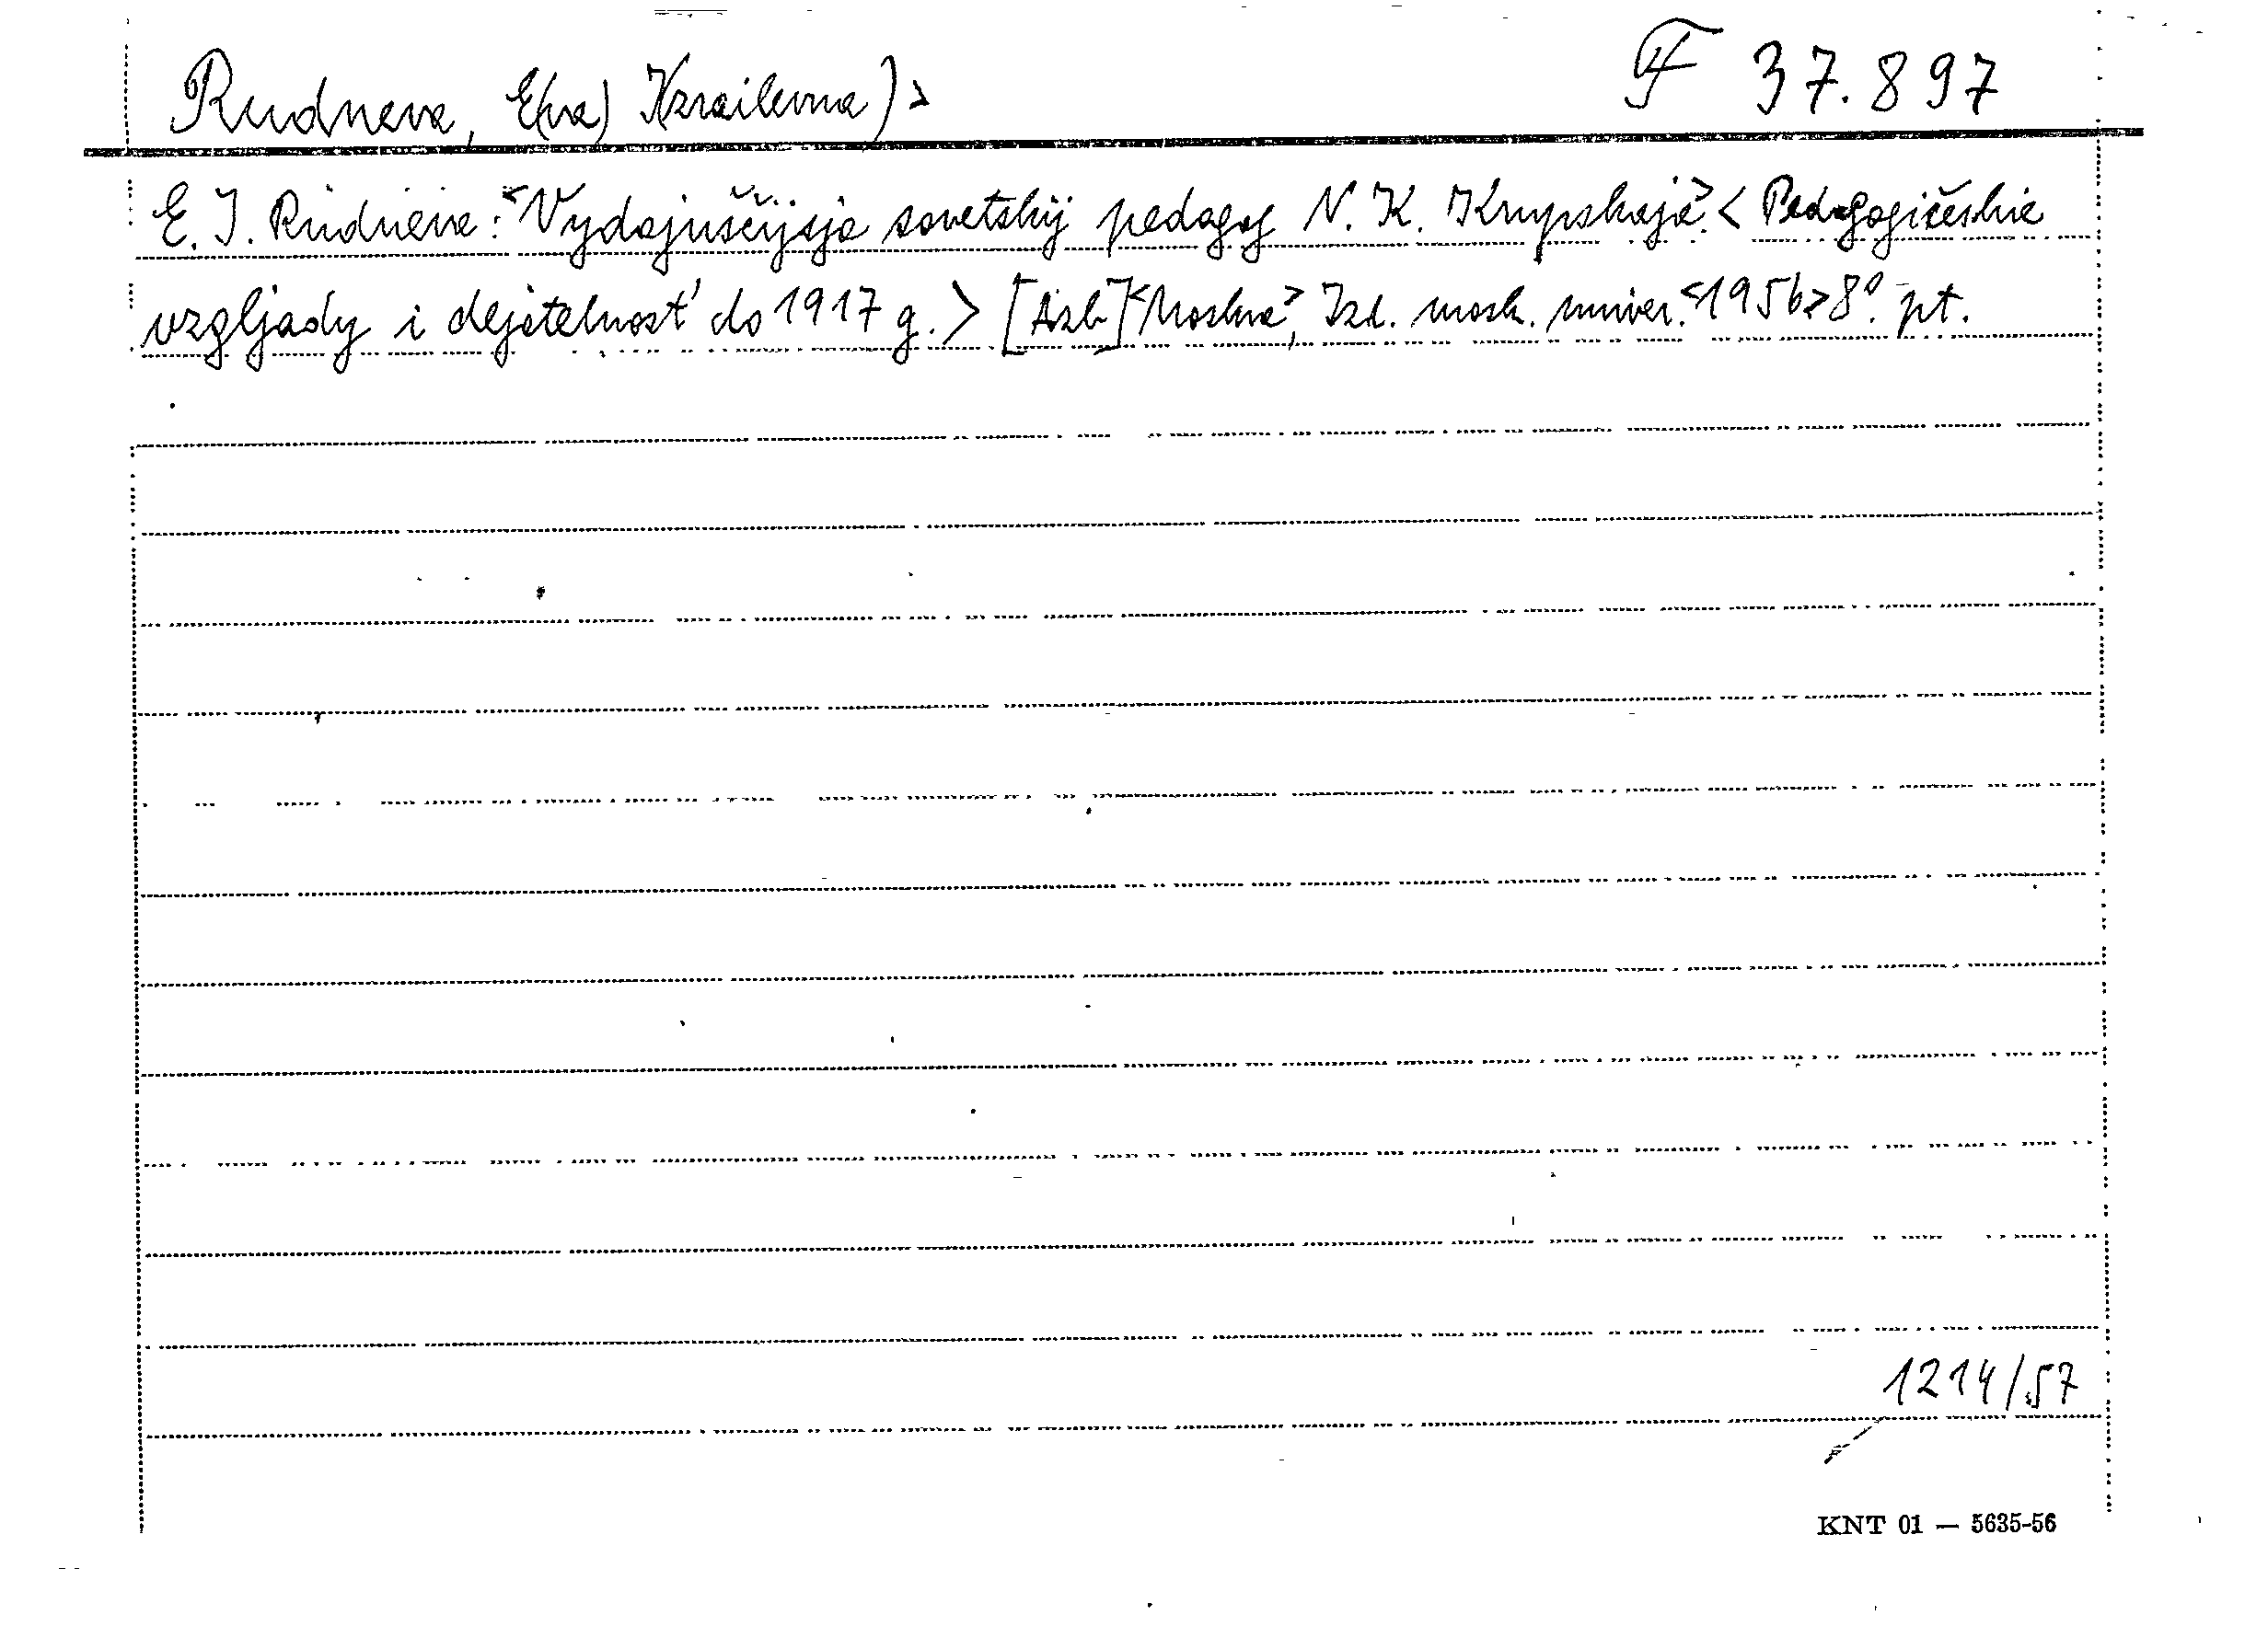 Rudneva, E(va) I(zrailevna)> F 37.897
E. I. Rudneva: <Vydajuščijsja sovetskij pedagog N. K. Krupskaja>. < Pedagogičeskie
vzgljady i dejatelnost' do 1917 g. > [Azb.] <Moskva>, Izd. mosk. univer. <1956> 8°. pt.
1214/57
KNT 01 — 5635-56